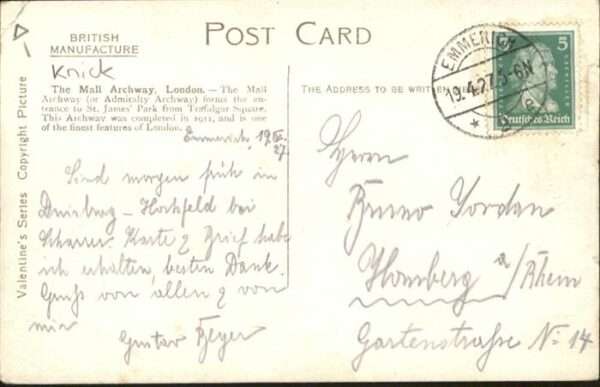 BRITISH
MANUFACTURE
POST CARD
Knick
The Mall Archway, London. — The Mall
Archway (or Admiralty Archway) forms the en-
trance to St. James' Park from Traffalgar Square.
This Archway was completed in 1911, and is one
of the finest features of London.
THE ADDRESS TO BE WRITTEN HERE
Emmerich, 19.IV.
27.
Sind morgen früh in
Duisburg – Hochfeld bei
Scharrer. Karte & Brief habe
ich erhalten, besten Dank.
Gruß von allen & von
mir
Gustav Beyer
Herrn
Bruno Jordan
Homberg a/Rhein
Gartenstraße No 14
EMMERICH
19.4.27.5-6N
5
Deutsches Reich
Valentine's Series Copyright Picture